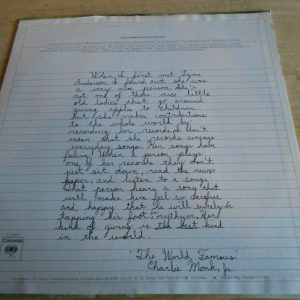 When I first met Lynn
Anderson I found out she was
a very nice person. She's
not one of those nice little
old ladies that go around
giving apples to children
but she makes contributions
to the whole world by
recording her records. I don't
mean that she records
everyday songs. Her songs have
feeling. When a person plays
one of her records they don't
just sit down, read the news
paper and listen to a song.
That person hears a song that
will make him feel so good
and happy that he will surely be
tapping his foot rhythm. Her
kind of giving is the best kind
in the world.
"The World Famous"
Charlie Monk, Jr.
Columbia